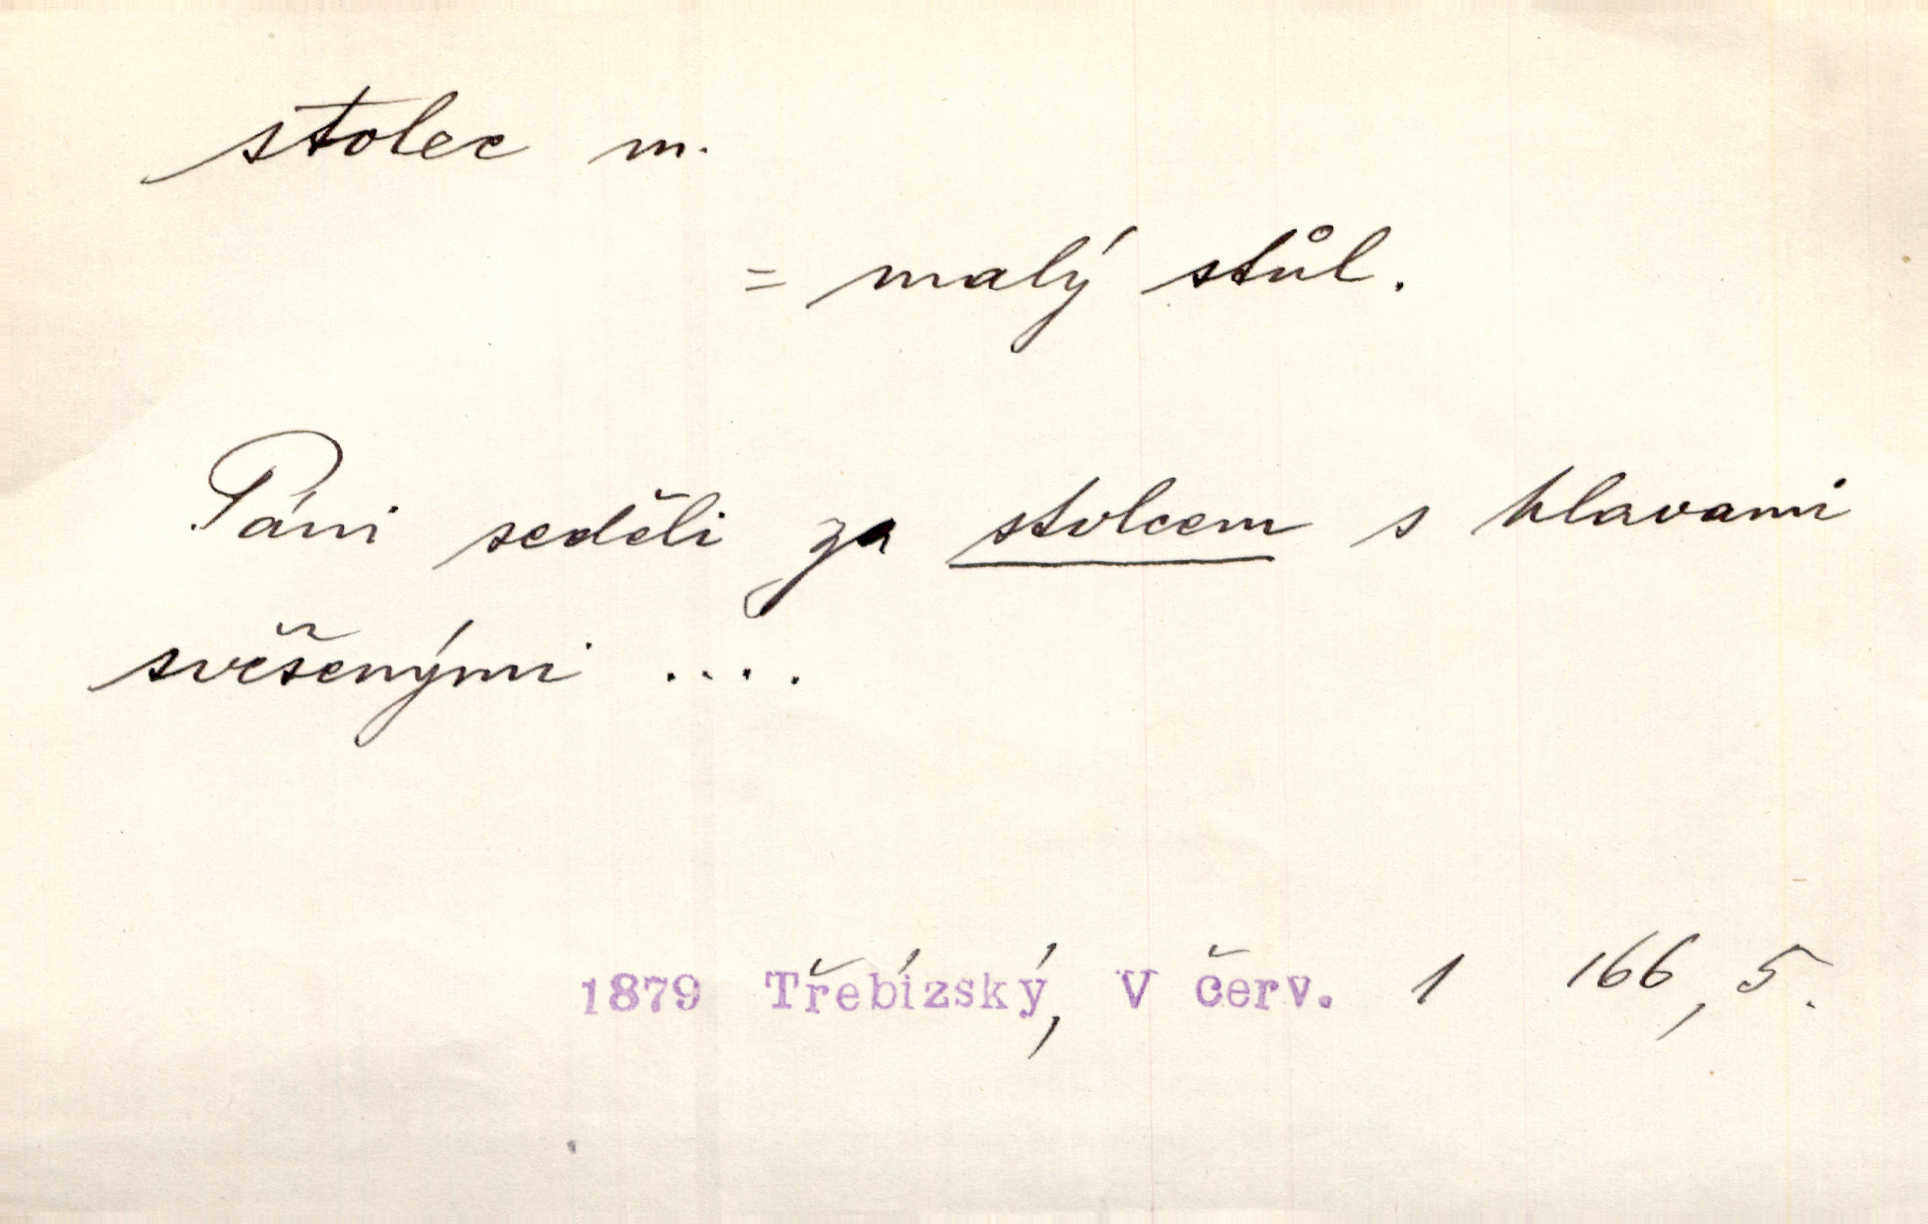 stolec m.
= malý stůl.
Páni seděli za stolcem s hlavami
svěšenými ....
1879 Třebízský, V červ. 1 166, 5.